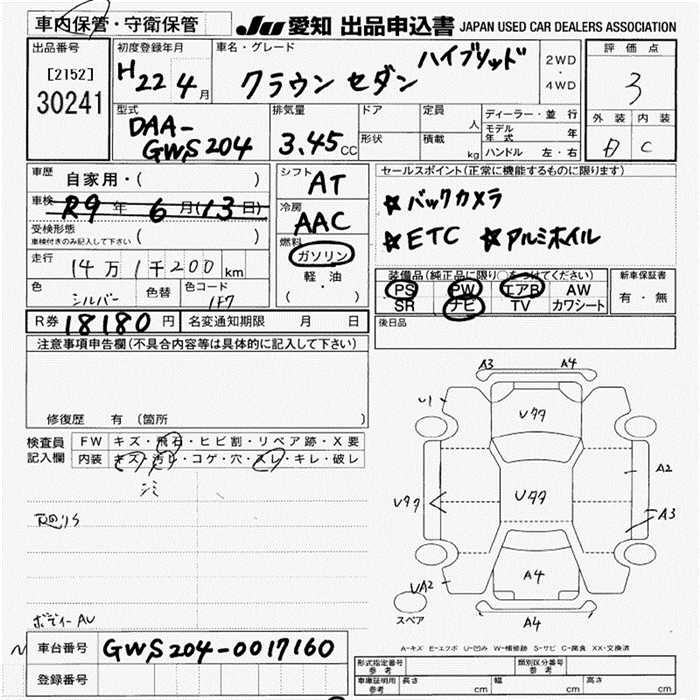 車内保管・守衛保管
JU 愛知 出品申込書 JAPAN USED CAR DEALERS ASSOCIATION
出品番号
[2152]
30241
初度登録年月
H22 4月
車名・グレード
クラウン セダン ハイブリッド
2WD
・
4WD
評価点
3
外装 内装
C
型式
DAA-
GWS204
排気量
3.45CC
ドア
形状
定員
人
積載
kg
ディーラー・並行
モデル年式 年
ハンドル 左・右
車歴
自家用・( )
車検
R9年 6月(13日)
受検形態
車検付きのみ記入して下さい ( )
走行
14万1千200km
色
シルバー
色替
色コード
1F7
シフト
AT
冷房
AAC
燃料
ガソリン
・
軽・油
( ・ )
セールスポイント(正常に機能するものに限ります)
☆バックカメラ
☆ETC ☆アルミホイル
装備品(純正品に限り○をつけてください)
PS PW エアB AW
SR ナビ TV カワシート
新車保証書
有・無
R券 18180円
名変通知期限 月 日
後日品
注意事項申告欄(不具合内容等は具体的に記入して下さい)
修復歴 有(箇所 )
検査員記入欄
FW キズ・飛石・ヒビ割・リペア跡・X要
内装 キズ・汚レ・コゲ・穴・スレ・キレ・破レ
シミ
ボディーAU
A3 A4
U1
Uタタ
A2
Uタタ
Uタタ
A3
UA2
A4
A4
スペア
A-キズ E-エクボ U-凹み W-補修跡 S-サビ C-腐食 XX-交換済
車台番号 GWS204-0017160
登録番号
形式指定番号 参考
類別区分番号 参考
車庫証明用 参考
長さ cm
幅 cm
高さ cm